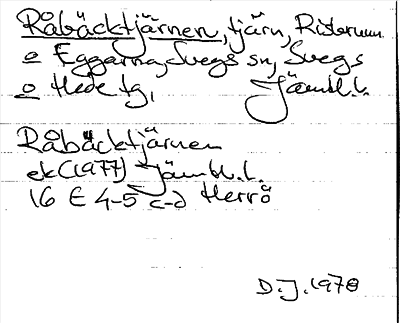 Råbäcktjärnen, tjärn, Risbrunn
o Eggarna, Svegs sn, Svegs
o Hede tg, Jämtl.l.
Råbäcktjärnen
ek (1977) Jämtl.l.
16 E 4-5 c-d Herrö
D.J. 1978